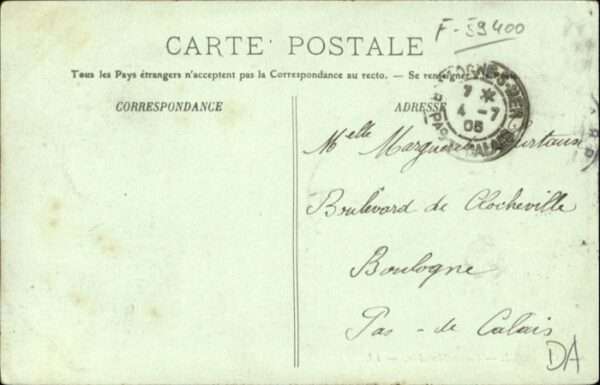 F-59400
CARTE POSTALE
Tous les Pays étrangers n'acceptent pas la Correspondance au recto. — Se renseigner
CORRESPONDANCE
ADRESSE
7
4 - 7
05
PAS DE CALAIS
Melle
Boulevard de Clocheville
Boulogne
Pas - de Calais
DA